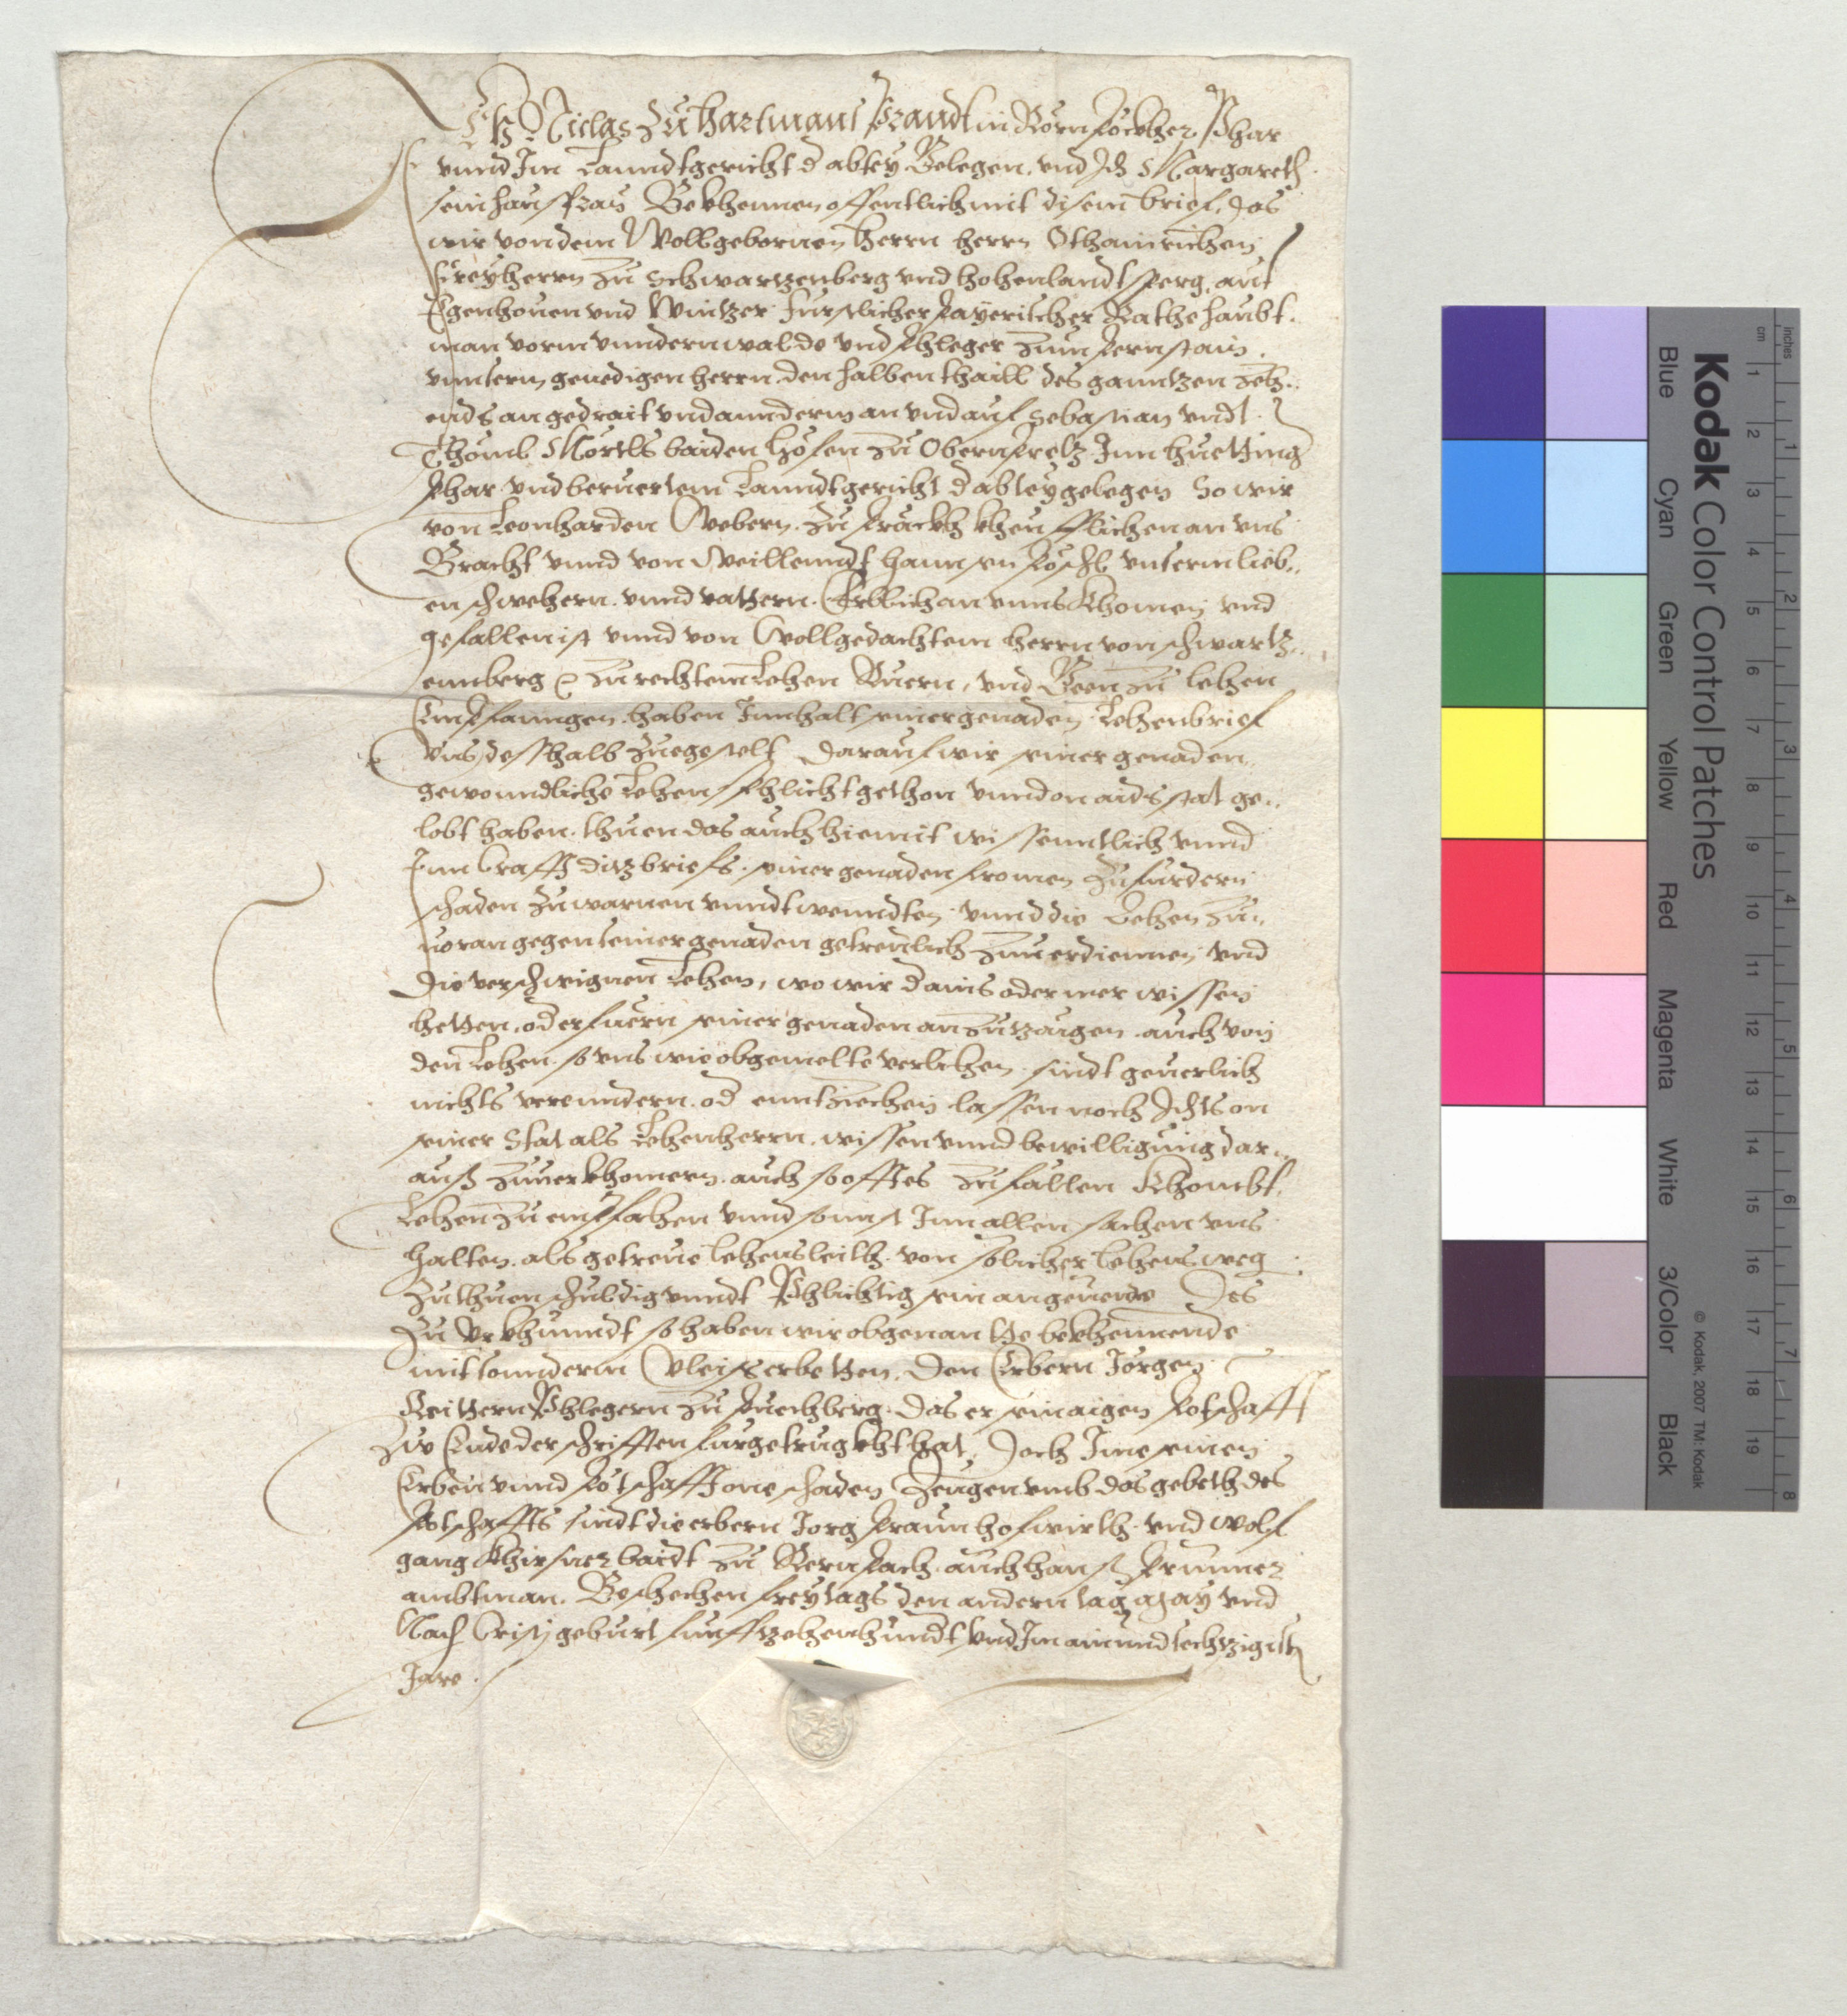 Ich Niclas zu Hartmans Prandt in Rörnpöckher Phar
vnnd Im Lanndtgericht d abtey Gelegen, vnd Ich Margareth
sein hausfraw Bekhennen offentlich mit disem brief, das
wir von dem Wollgebornen herrn herrn Othainrichen
Freyherrn zu Schwartzenberg vnd hohenlandtsperg, auf
Egenhouen vnd Wintzer fürstlicher Bayerischer Rathe haubt.
man vorm vnndern walde vnd Phleger zum Pernstain
vnnsern genedigen herrn den halben thaill des ganntzen Zeh..
ends an gedrait vnd annderm an vnd auf Sebastian vndt
Thoml Mörtls baiden höfen zu Obern Inn huetting
Phar vnd beruertem Lanndtgericht d abtey gelegen So wir
von Leonharden Webern zu kheufflichen an vns
Bracht vnnd von Weillenndt hannsen Pöschl vnserm lieb..
en schwehern vnnd vattern Erblich an vnns khomen vnd
gefallen ist vnnd von Wollgedachtem herrn von schwartz..
ennberg zu rechtem Lehen Ruern, vnd Geen zu lehen
Empfanngen haben Innhalt seiner genaden Lehenbrief
vns desshalb zuegestelt Darauf wir seiner genaden
gewonndliche Lehens phlicht gethon vnnd on aids stat ge..
lobt haben thuen das auch hiemit wissenntlich vnnd
Inn Crafft ditz briefs seiner genaden fromen zu furdern
schaden zu warnen vnnd wenndten vnnd die Lehen zu..
uoran gegen seiner genaden getreulich zuuerdiennen vnd
Die verschwignen Lehen, wo wir d ains oder mer wissen
hetten, oder fuern seiner genaden anzutzaigen auch von
den Lehen so vns wie obgemelte verlihen sindt geuerlich
nichts verenndern od enntziechen lassen noch Ichts on
seiner Stat als Lehenherrn wissen vnnd bewilligung dar..
auß zuuerkhomern auch so offt es zu fallen khombt
Lehen zu empfahen vnnd sonnst Inn allen sachen vns
halten als getreue lehensleith von solicher lehens weg
zuthuen schuldig vnndt Phlichtig sein angeuerde Des
zu Vrkhunndt so haben wir obgenantte bekhennende
mit sonnderm Vleiss erbetten Den Erbern Jörgen
Reittern Phlegern zu Puechberg das er sein aigen Petschafft
zw Ende der schrifften furgetrugkht hat, Doch Ime seinen
Erben vnnd Petschafft one schaden Zeugen vmb das gebeth des
Petschaffts sindt die erbern Jorg Praun hofwirth vnd wolf
gang khirsner baidt zu Rernpach auch hanß Prunner
ambtman. Beschechen Freytags den andern tag May vnd
Nach Cristj geburt funfftzehenhundt vnd Im ainundsechtzigisten
Jare.
Kodak Color Control Patches
Blue Cyan Green Yellow Red Magenta White 3/Color Black
© Kodak, 2007 TM: Kodak
cm 1 2 3 4 5 6 7 8 9 10 11 12 13 14 15 16 17 18 19
inches 1 2 3 4 5 6 7 8